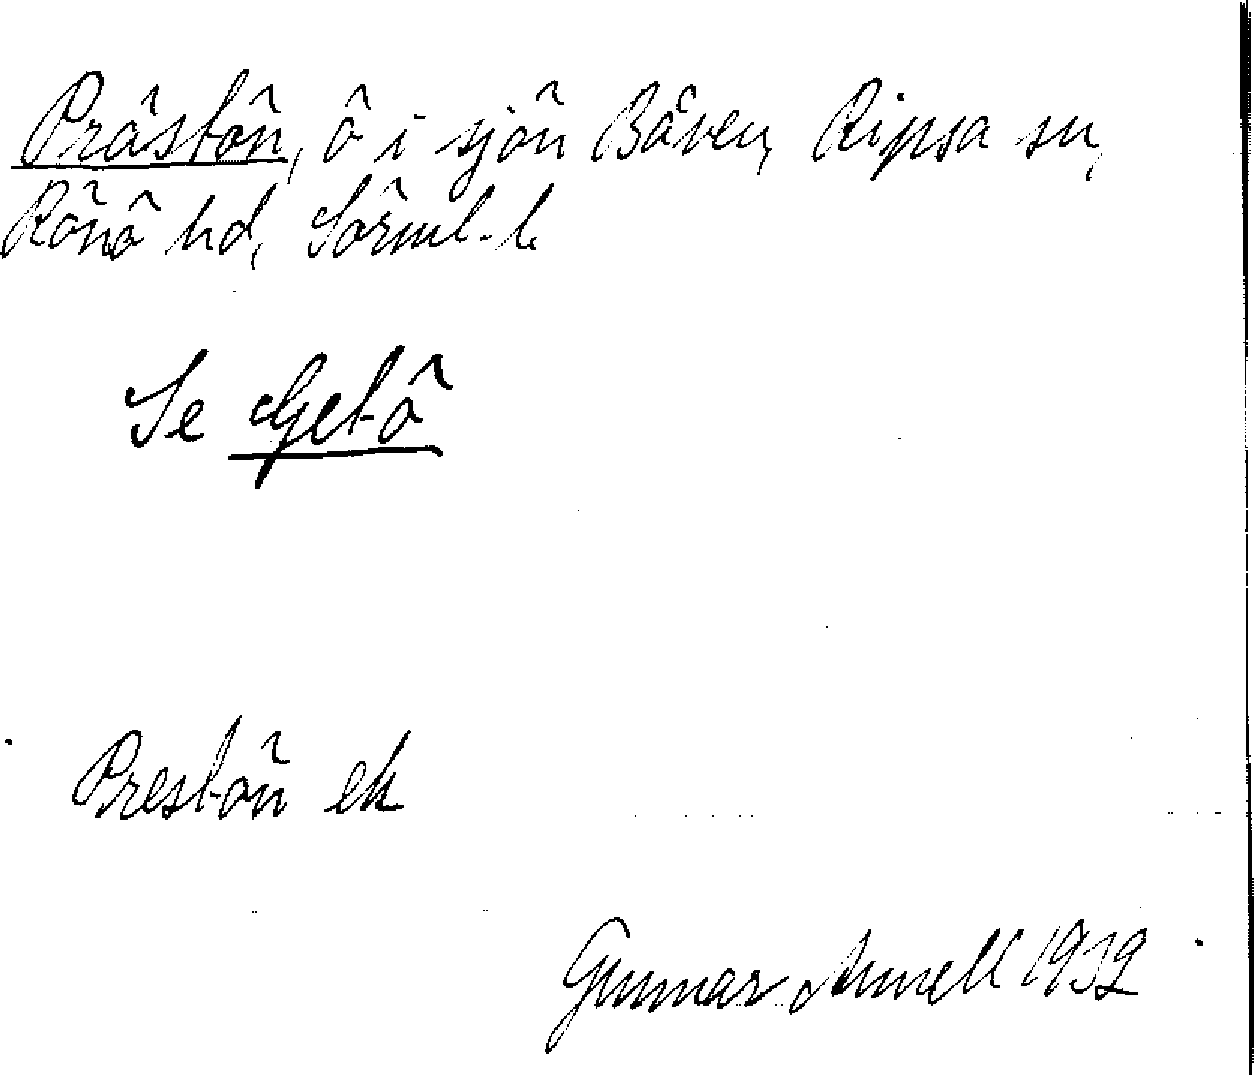 Prästön, ö i sjön Båven, Ripsa sn,
Rönö hd, Sörml. l.
Se Getö
Prestön ek
Gunnar Annell 1932